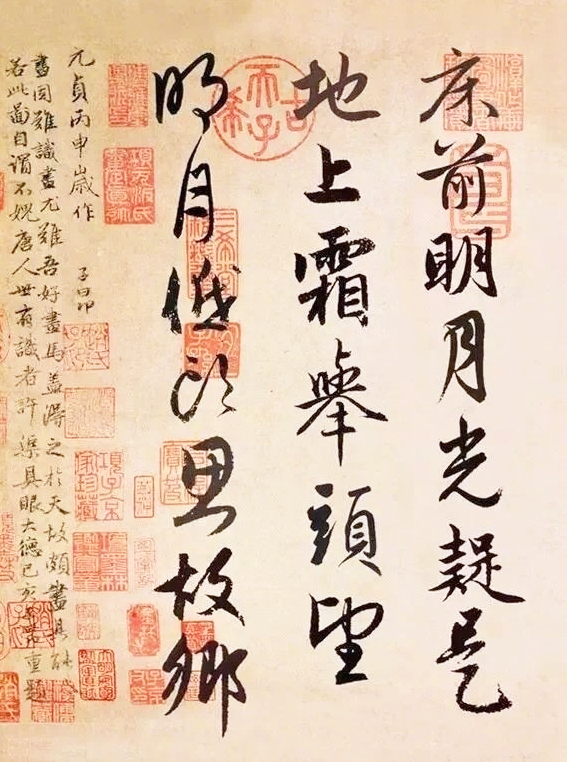 床前明月光疑是
地上霜舉頭望
明月低頭思故鄉
古希天子
元貞丙申歲作 子昂
畫固難識畫尤難吾好畫馬蓋得之於天故頗盡其能
若此圖自謂不愧唐人世有識者許渠具眼大德己亥子昂重題
項子京家珍藏